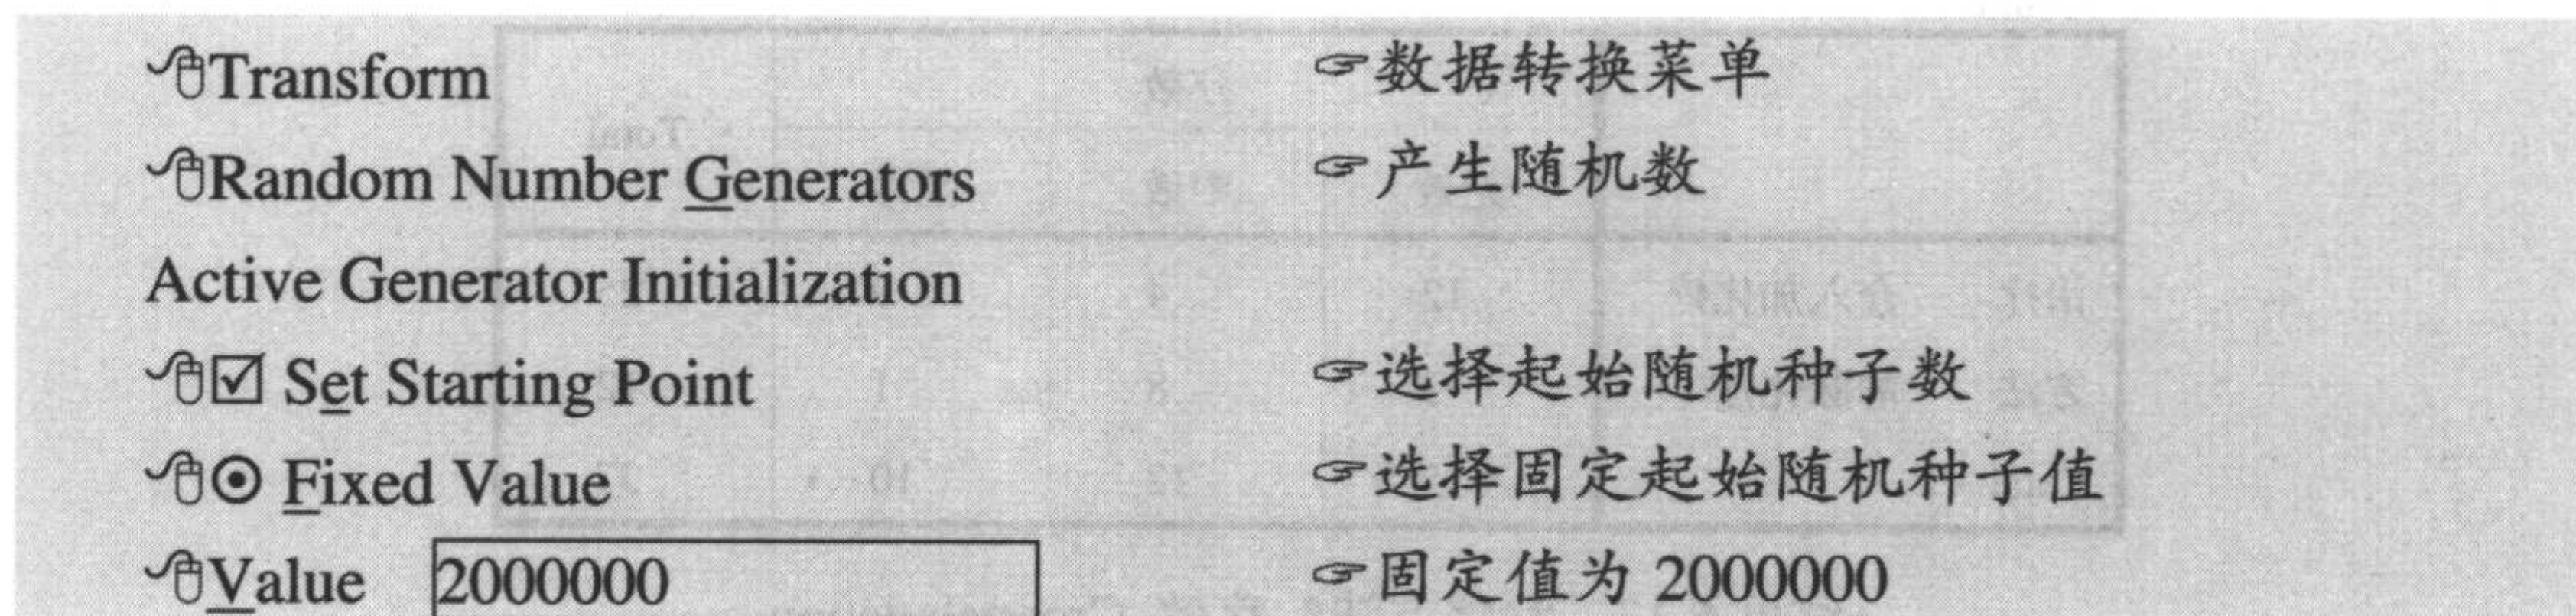 🖰Transform ☞数据转换菜单
🖰Random Number Generators ☞产生随机数
Active Generator Initialization
🖰☑ Set Starting Point ☞选择起始随机种子数
🖰⊙ Fixed Value ☞选择固定起始随机种子值
🖰Value 2000000 ☞固定值为 2000000